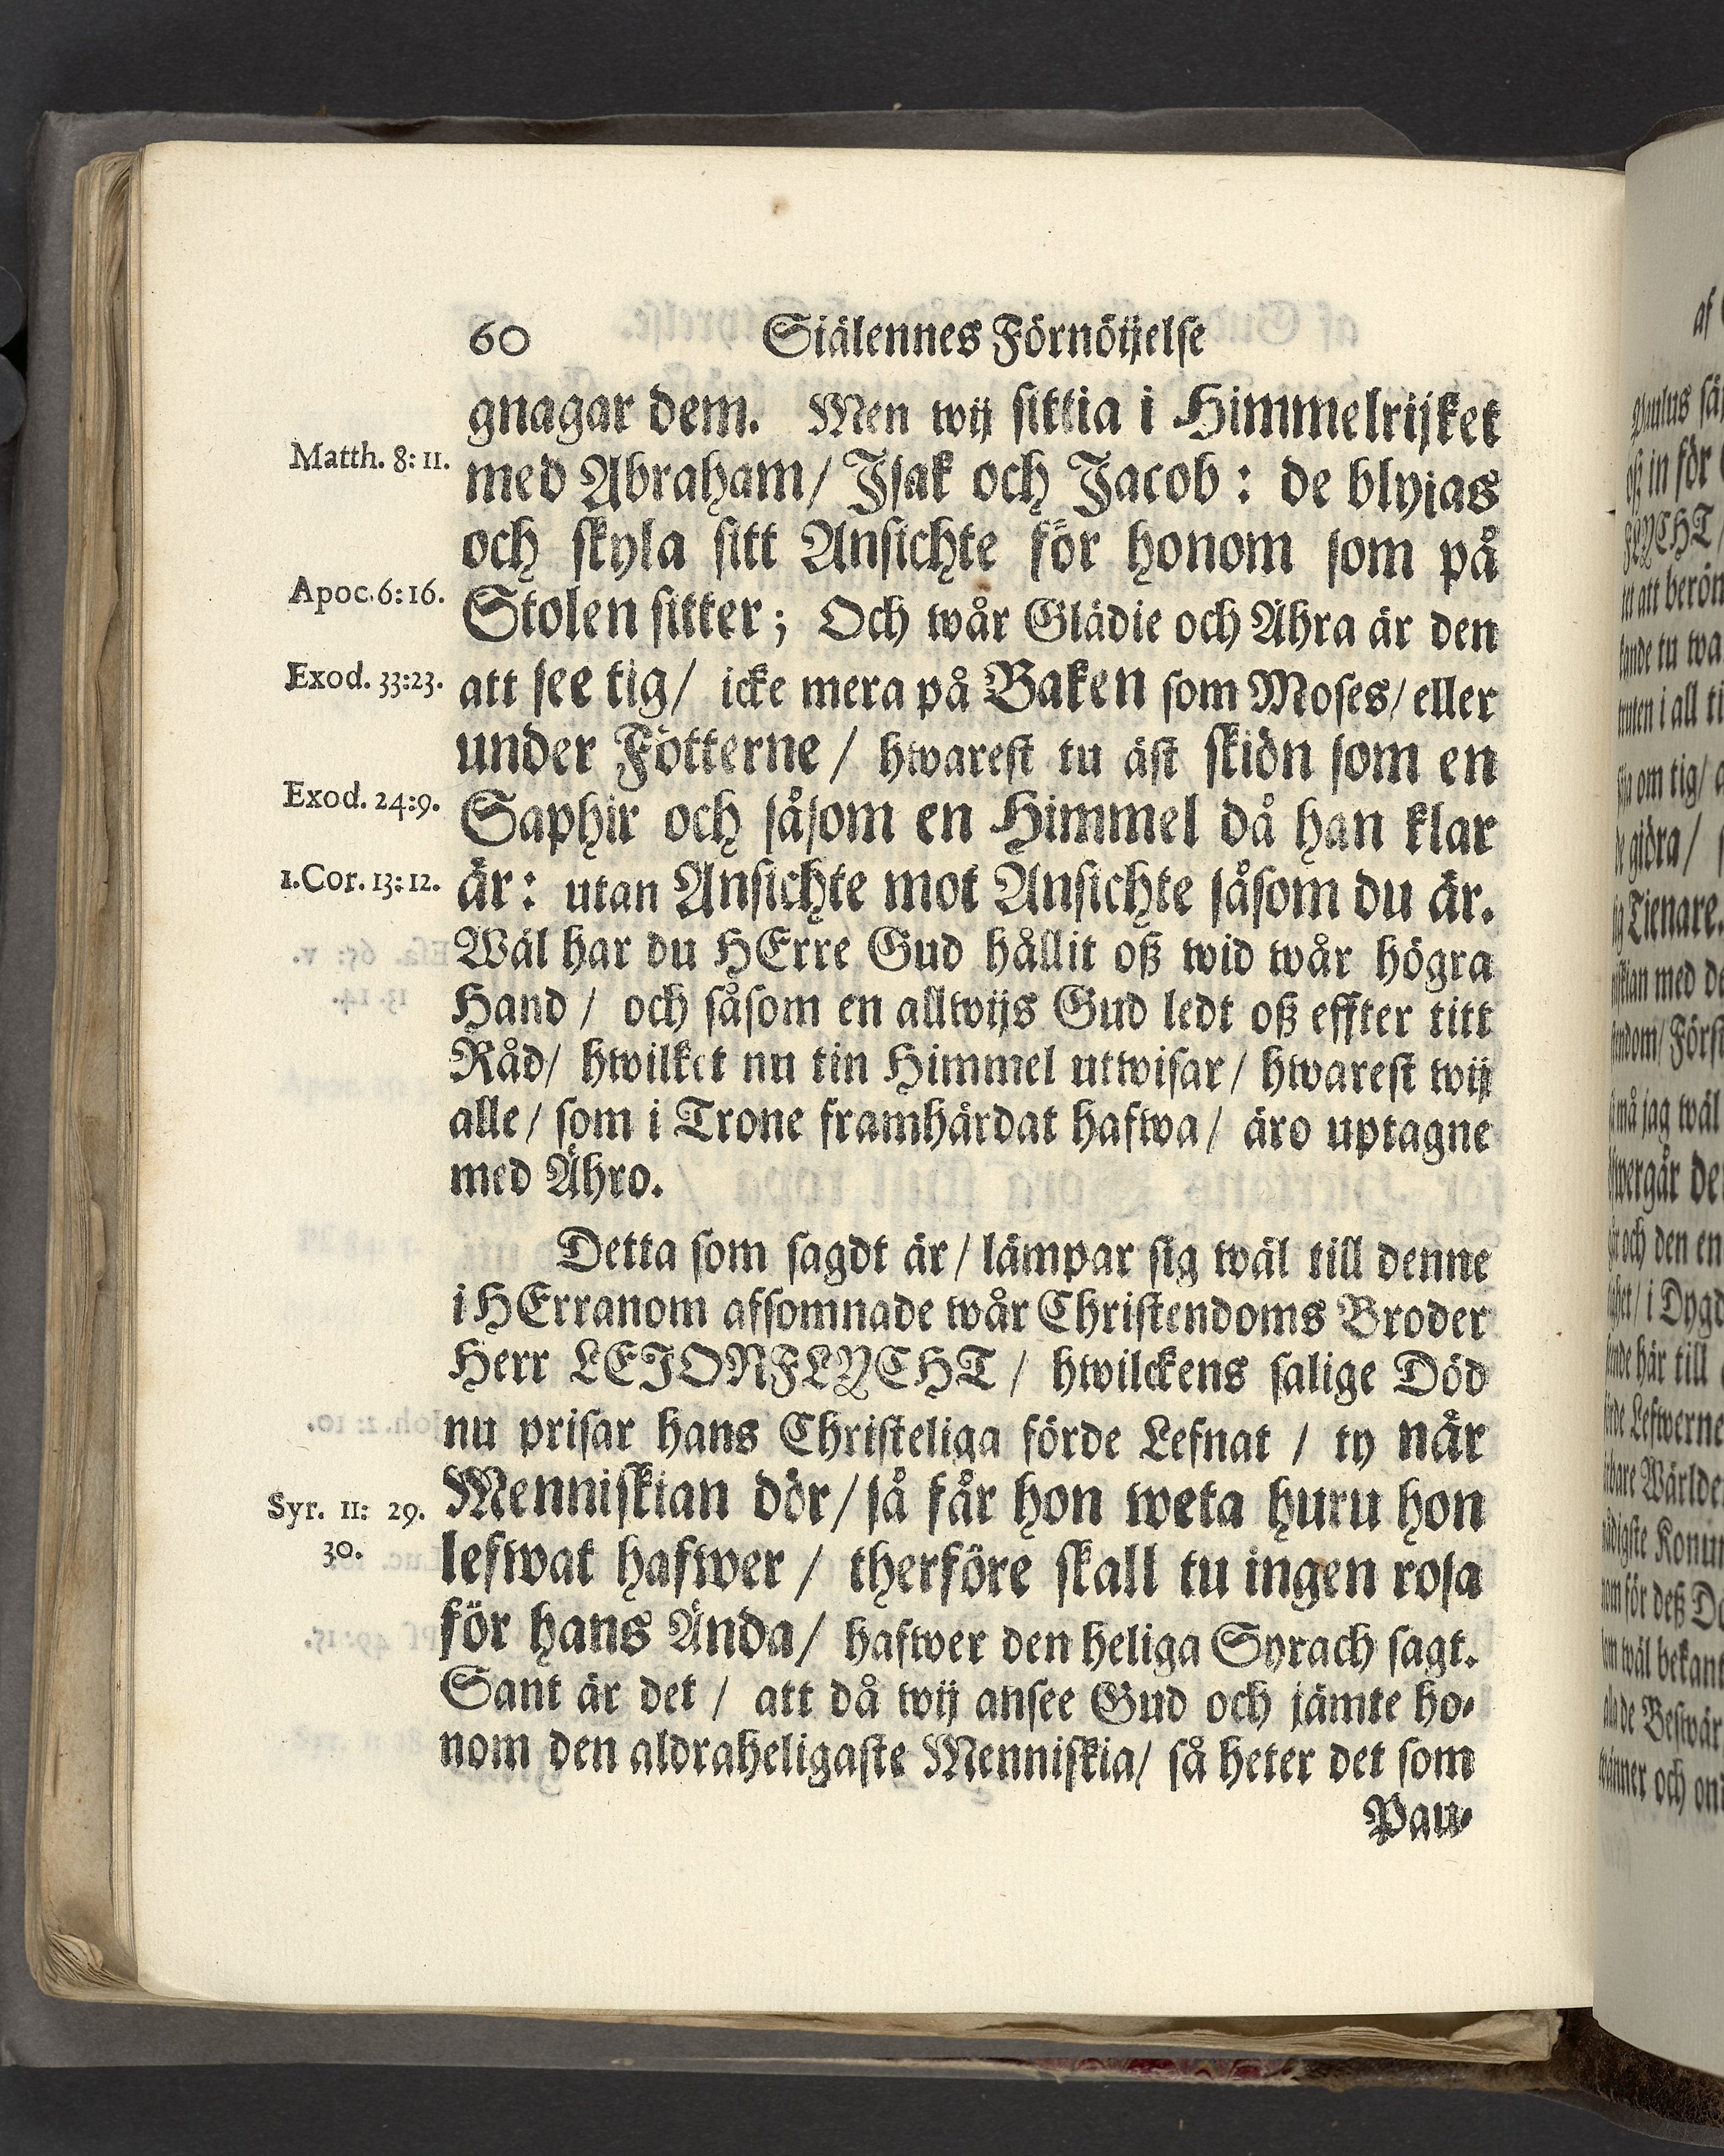 60 Siälennes Förnöijelse
gnagar dem. Men wij sittia i Himmelrijket
Matth. 8: 11.
med Abraham/ Isak och Jacob : de blyjas
och skyla sitt Ansichte för honom som på
Apoc. 6: 16.
Stolen sitter; Och wår Glädie och Ähra är den
Exod. 33:23.
att see tig/ icke mera på Baken som Moses/ eller
under Fötterne / hwarest tu äst skiön som en
Exod. 24:9.
Saphir och såsom en Himmel då han klar
1.Cor. 13: 12.
är: utan Ansichte mot Ansichte såsom du är.
Wäl har du HErre Gud hållit oß wid wår högra
Hand / och såsom en allwijs Gud ledt oß effter titt
Råd/ hwilket nu tin Himmel utwisar/ hwarest wij
alle/ som i Trone framhärdat hafwa/ äro uptagne
med Ähro.
Detta som sagdt är/ lämpar sig wäl till denne
i HErranom afsomnade wår Christendoms Broder
Herr LEJONFLYCHT / hwilckens salige Död
nu prisar hans Christeliga förde Lefnat / ty när
Menniskian dör/ så får hon weta huru hon
Syr. 11: 29.
30.
lefwat hafwer / therföre skall tu ingen rosa
för hans Ända/ hafwer den heliga Syrach sagt.
Sant är det / att då wij ansee Gud och jämte ho-
nom den aldraheligaste Menniskia/ så heter det som
Pau-